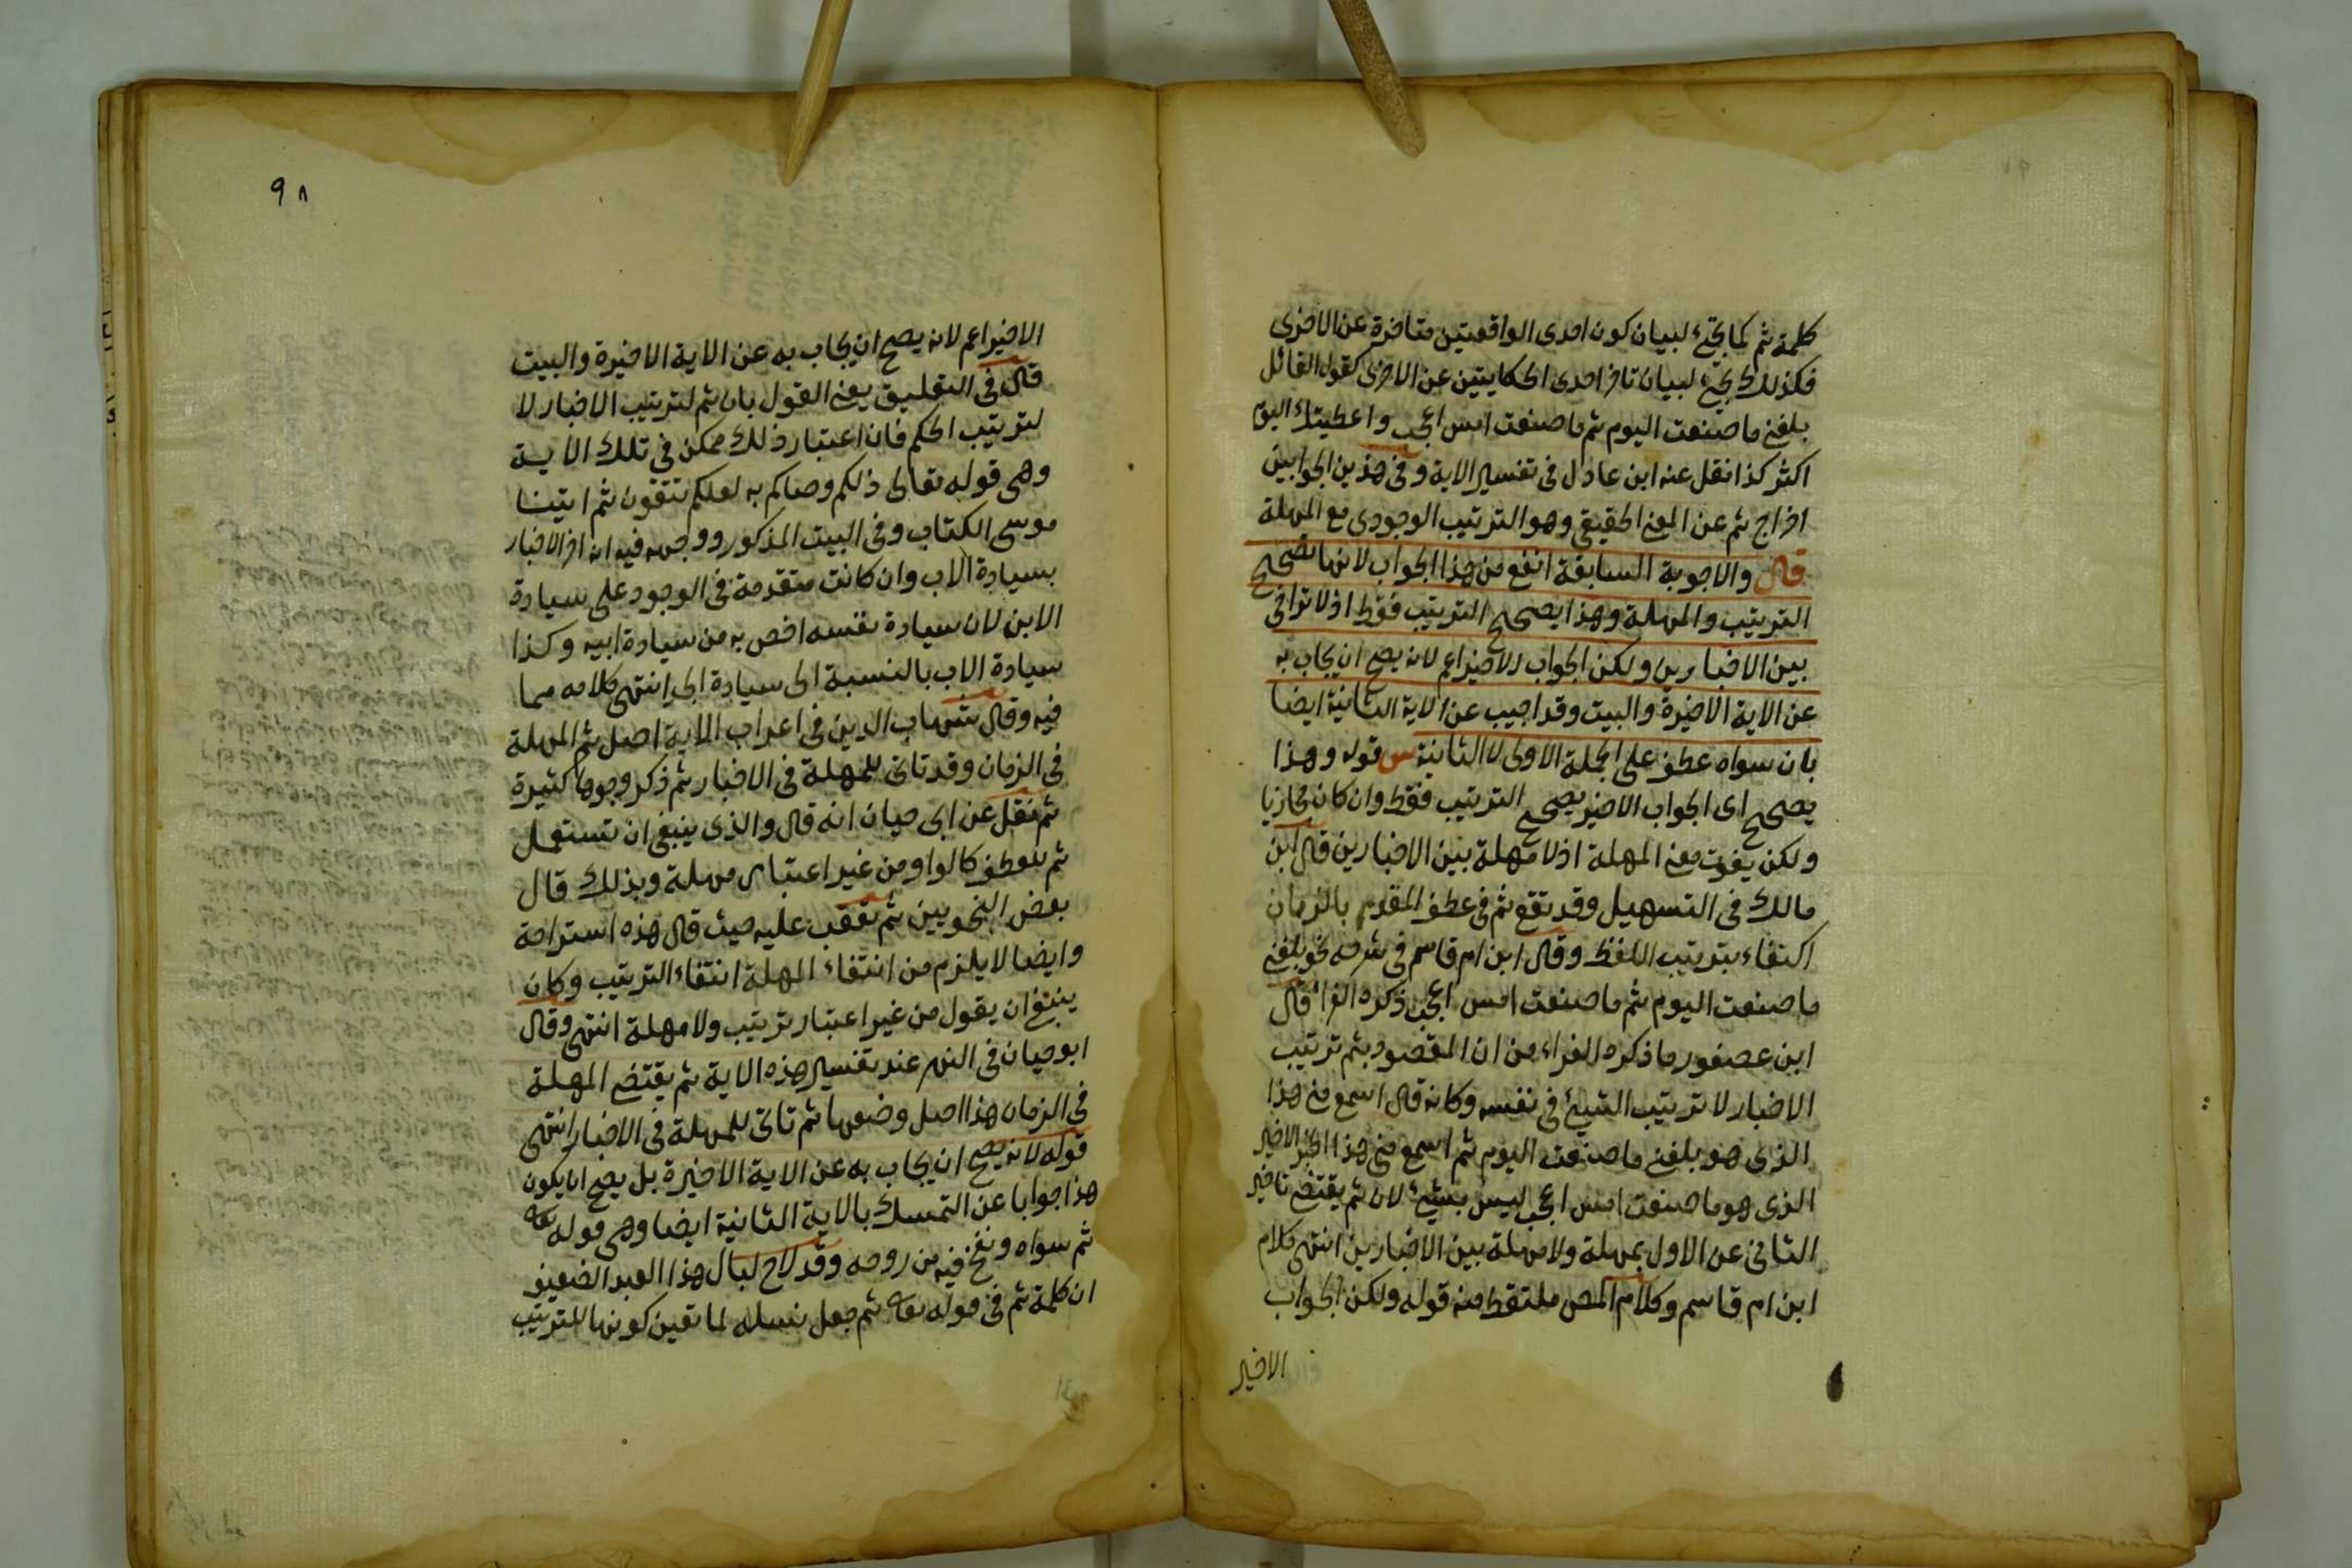 كلمة ثم كما يجئ لبيان كون احدى الواقعتين متاخرة عن الاخرى
فكذلك يجئ لبيان تاخر احدى الحكايتين عن الاخرى كقول القائل
بلغنى ما صنعت اليوم ثم ما صنعت امس اعجب واعطيتك اليوم
اكثر كذا نقل عنه ابن عادل فى تفسير الاية وفى هذين الجوابين
اخراج ثم عن المعنى الحقيقى وهو الترتيب الوجودى مع المهلة
قال والاجوبة السابقة انفع من هذا الجواب لانها تصحح
الترتيب والمهلة وهذا يصحح الترتيب فقط اذ لا تراخى
بين الاخبارين ولكن الجواب الاخير اعم لانه يصح ان يجاب به
عن الاية الاخيرة والبيت وقد اجيب عن الاية الثانية ايضا
بان سواه عطف على الجملة الاولى لا الثانية س قوله وهذا
يصحح اى الجواب الاخير يصحح الترتيب فقط وان كان مجازيا
ولكن يفوت معنى المهلة اذ لا مهلة بين الاخبارين قال ابن
مالك فى التسهيل وقد تقع ثم فى عطف المقدم بالزمان
اكتفاء بترتيب اللفظ وقال ابن ام قاسم فى شرحه نحو بلغنى
ما صنعت اليوم ثم ما صنعت امس اعجب ذكره الفراء قال
ابن عصفور ما ذكره الفراء من ان المقصود بثم ترتيب
الاخبار لا ترتيب الشيئ فى نفسه وكانه قال اسمع منى هذا
الذى هو بلغنى ما صنعت اليوم ثم اسمع منى هذا الخبر الاخير
الذى هو ما صنعت امس اعجب ليس بشيئ لان ثم يقتضى تاخير
الثانى عن الاول بمهلة ولا مهلة بين الاخبارين انتهى كلام
ابن ام قاسم وكلام المص ملتقط منه قوله ولكن الجواب
الاخير
٩٨
الاخير اعم لانه يصح ان يجاب به عن الاية الاخيرة والبيت
قال فى التعليق يعنى القول بان ثم لترتيب الاخبار لا
لترتيب الحكم فان اعتبار ذلك ممكن فى تلك الاية
وهى قوله تعالى ذلكم وصاكم به لعلكم تتقون ثم اتينا
موسى الكتاب وفى البيت المذكور ووجهه فيه انه اخر الاخبار
بسيادة الاب وان كانت متقدمة فى الوجود على سيادة
الابن لان سيادة نفسه اخص به من سيادة ابيه وكذا
سيادة الاب بالنسبة الى سيادة الجد انتهى كلامه مما
فيه وقال شهاب الدين فى اعراب الاية اصل ثم المهلة
فى الزمان وقد تاتى للمهلة فى الاخبار ثم ذكر وجوها كثيرة
ثم نقل عن ابى حيان انه قال والذى ينبغى ان تستعمل
ثم للعطف كالواو من غير اعتبار مهلة وبذلك قال
بعض النحويين ثم تعقب عليه حيث قال هذه استراحة
وايضا لا يلزم من انتفاء المهلة انتفاء الترتيب وكان
ينبغى ان يقول من غير اعتبار ترتيب ولا مهلة انتهى وقال
ابو حيان فى النهر عند تفسير هذه الاية ثم يقتضى المهلة
فى الزمان هذا اصل وضعها ثم تاتى للمهلة فى الاخبار انتهى
قوله لانه يصح ان يجاب به عن الاية الاخيرة بل يصح ان يكون
هذا جوابا عن التمسك بالاية الثانية ايضا وهى قوله تعه
ثم سواه ونفخ فيه من روحه وقد لاح لبال هذا العبد الضعيف
ان كلمة ثم فى قوله تعه ثم جعل نسله لما تعين كونها للترتيب